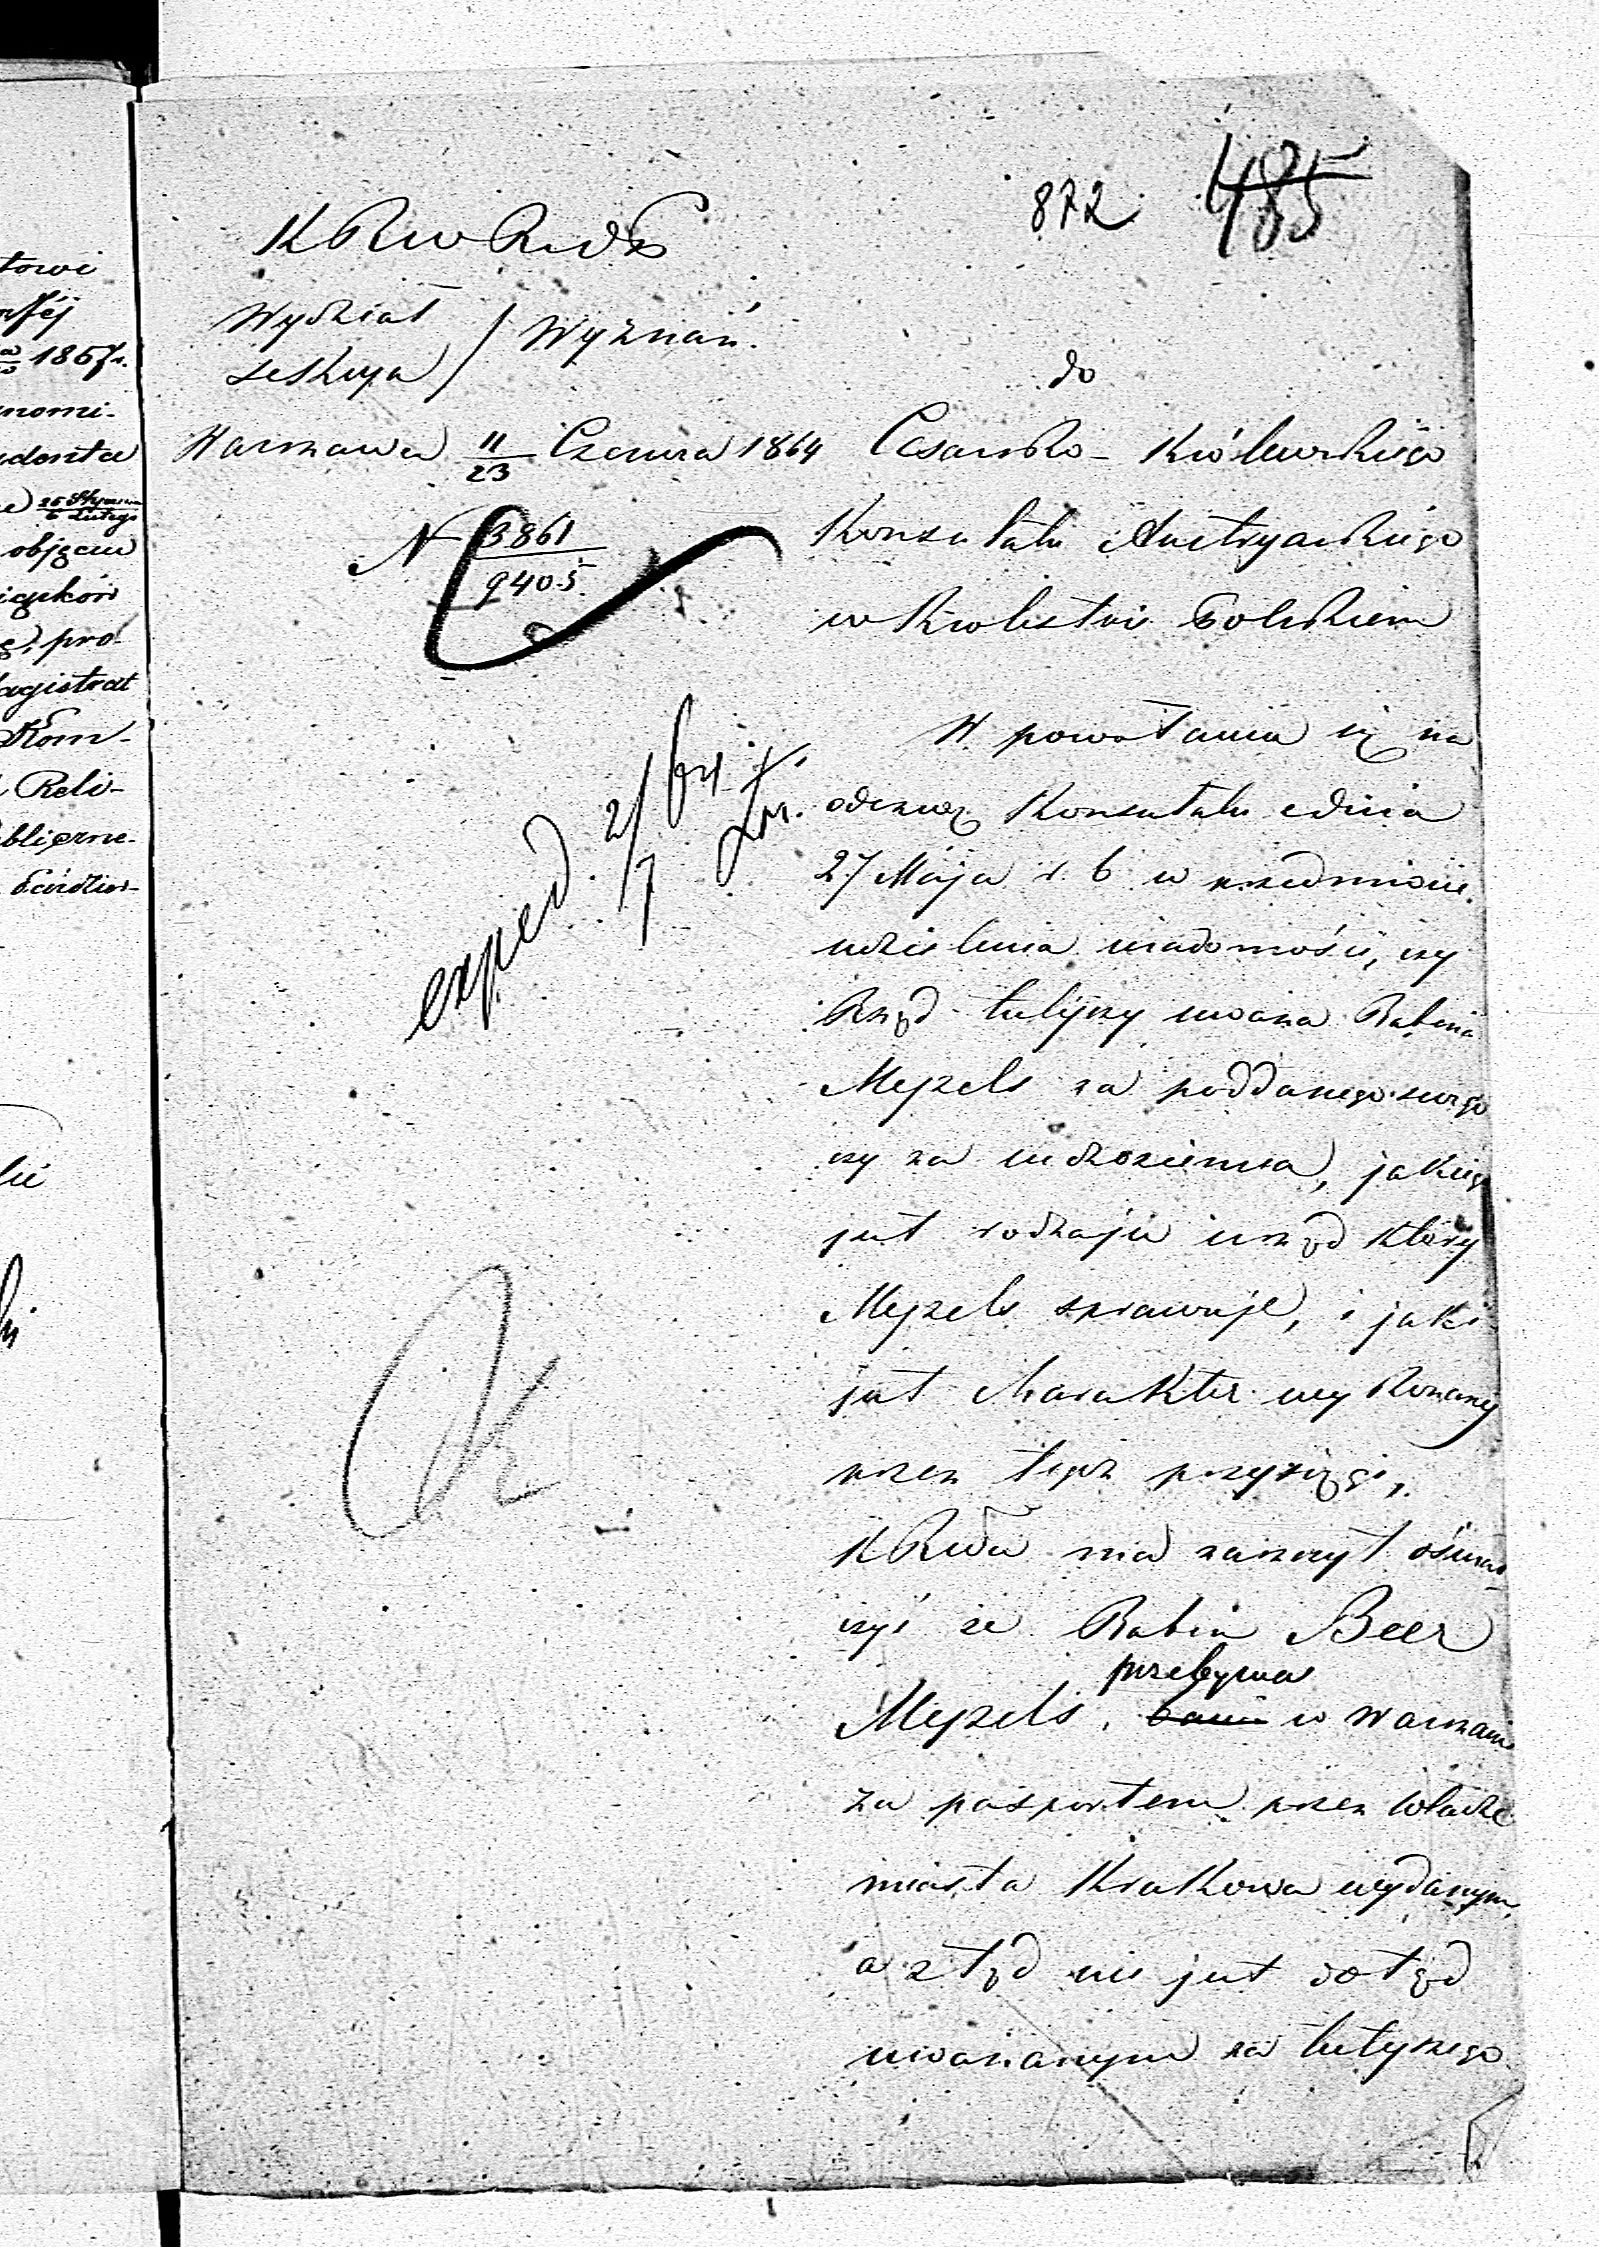 towi
1867r.
nomi-
denta
26 Stycznia
6 Lutego
objęciu
pro-
Magistrat
Kom-
Reli-
872 485
Wydział / Wyznań.
Sekcya
do
Warszawa 11/23 Czerwca 1864
Cesarsko-Królewskiego
N 3861
9405
Konsulatu Austryackiego
w Królestwie Polskiem
W powołaniu się na
odezwę Konsulatu z dnia
27 Maja r. b w przedmiocie
udzielenia wiadomości, czy
Rząd tutejszy uważa Rabina
Meyzels za poddanego swego
czy za cudzoziemca, jakiego
jest rodzaju urząd który
Meyzels sprawuje, i jaki
jest charakter wykonanej
przez tegoż przysięgi,
KRwa ma zaszczyt oświad-
czyć że Rabin Beer
przebywa
Meyzels, bawi w Warszawie
za pasportem przez Władze
miasta Krakowa wydanym,
a ztąd nie jest dotąd
uważanym za tutejszego
exped 2/7 64 r.